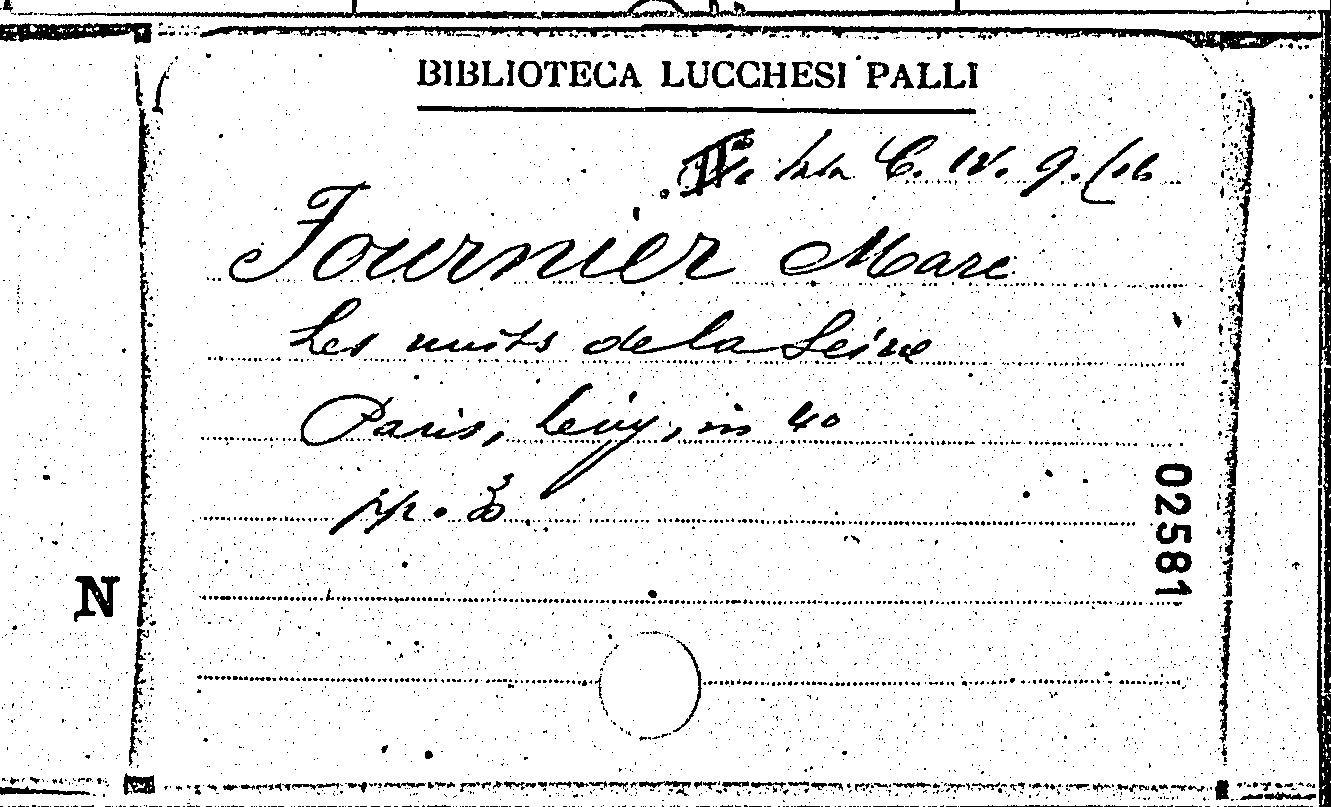 BIBLIOTECA LUCCHESI PALLI
Sala C. IV. 9. (16
Fournier Marc
Les nuits de la Seine
Paris, Levy, in 4o
pp.
02581
N